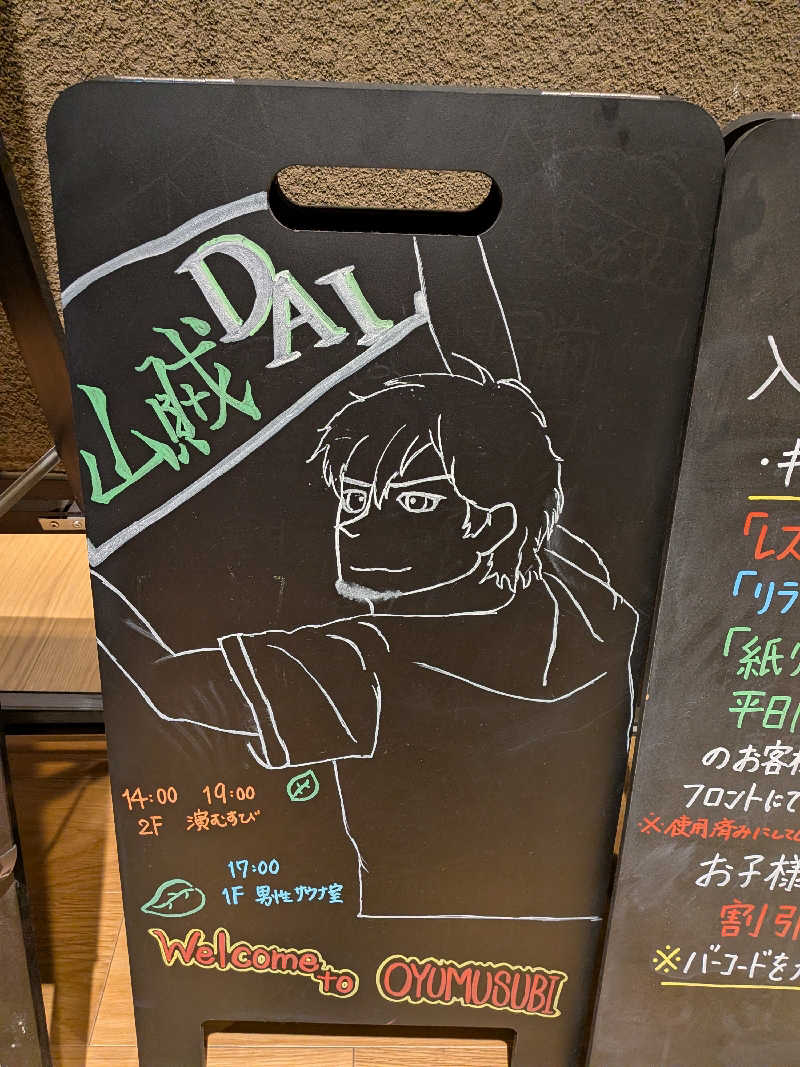 山賊DAI
14:00 19:00
2F 演むすび
17:00
1F 男性サウナ室
Welcome to OYUMUSUBI
入
・キ
「レス
「リラ
「紙
平日
のお客様
フロントにて
※使用済みにして
お子様
割引
※バーコードを